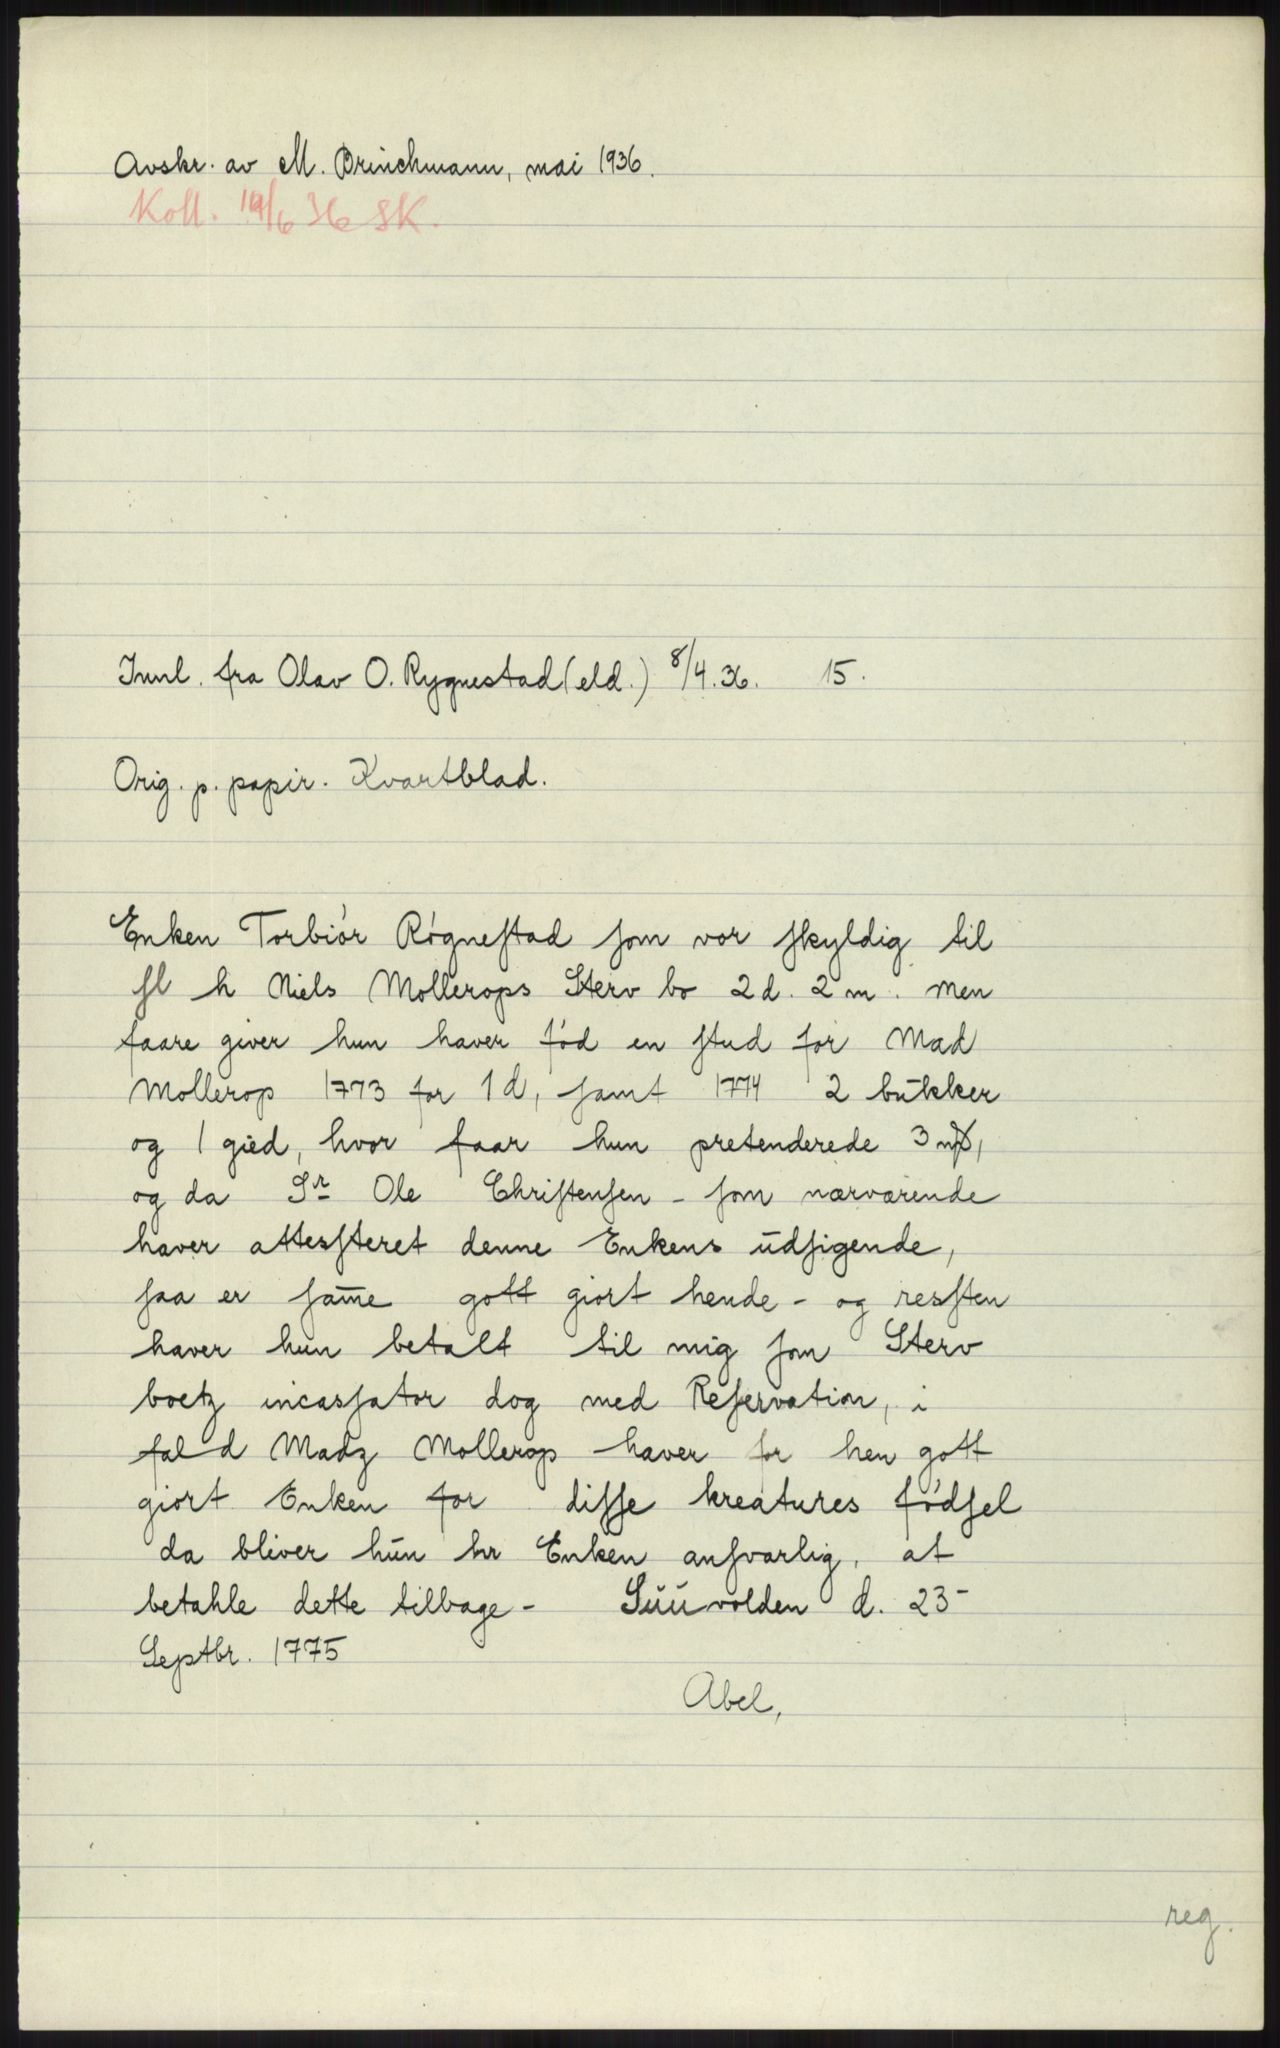 Avskr. av M. Brinchmann, mai 1936.
Koll. 19/6 36 SK.
Innl. fra Olav O. Rygnestad (eld.) 8/4.36. 15.
Orig. p. papir. Kvartblad.
Enken Torbiør Røgneſtad ſom var ſkyldig til
ſl h Niels Mollerops Sterv bo 2 d. 2 m. men
faare giver hun haver fød en ſtud for Mad
Mollerop 1773 for 1 d, ſamt 1774 2 bukker
og 1 gied, hvor faar hun pretenderede 3 mß,
og da Sr Ole Chriſtenſen - ſom nærværende
haver attesſteret denne Enkens udſigende,
ſaa er ſam̅e gott giort hende - og resſten
haver hun betalt til mig ſom Sterv
boetz incasſator dog med Reſervation, i
fal d Madz Mollerop haver for hen gott
giort Enken for diſſe kreatures fødſel
da bliver hun hr Enken anſvarlig, at
betahle dette tilbage - Suuvolden d. 23-
Septbr. 1775
Abel,
reg.